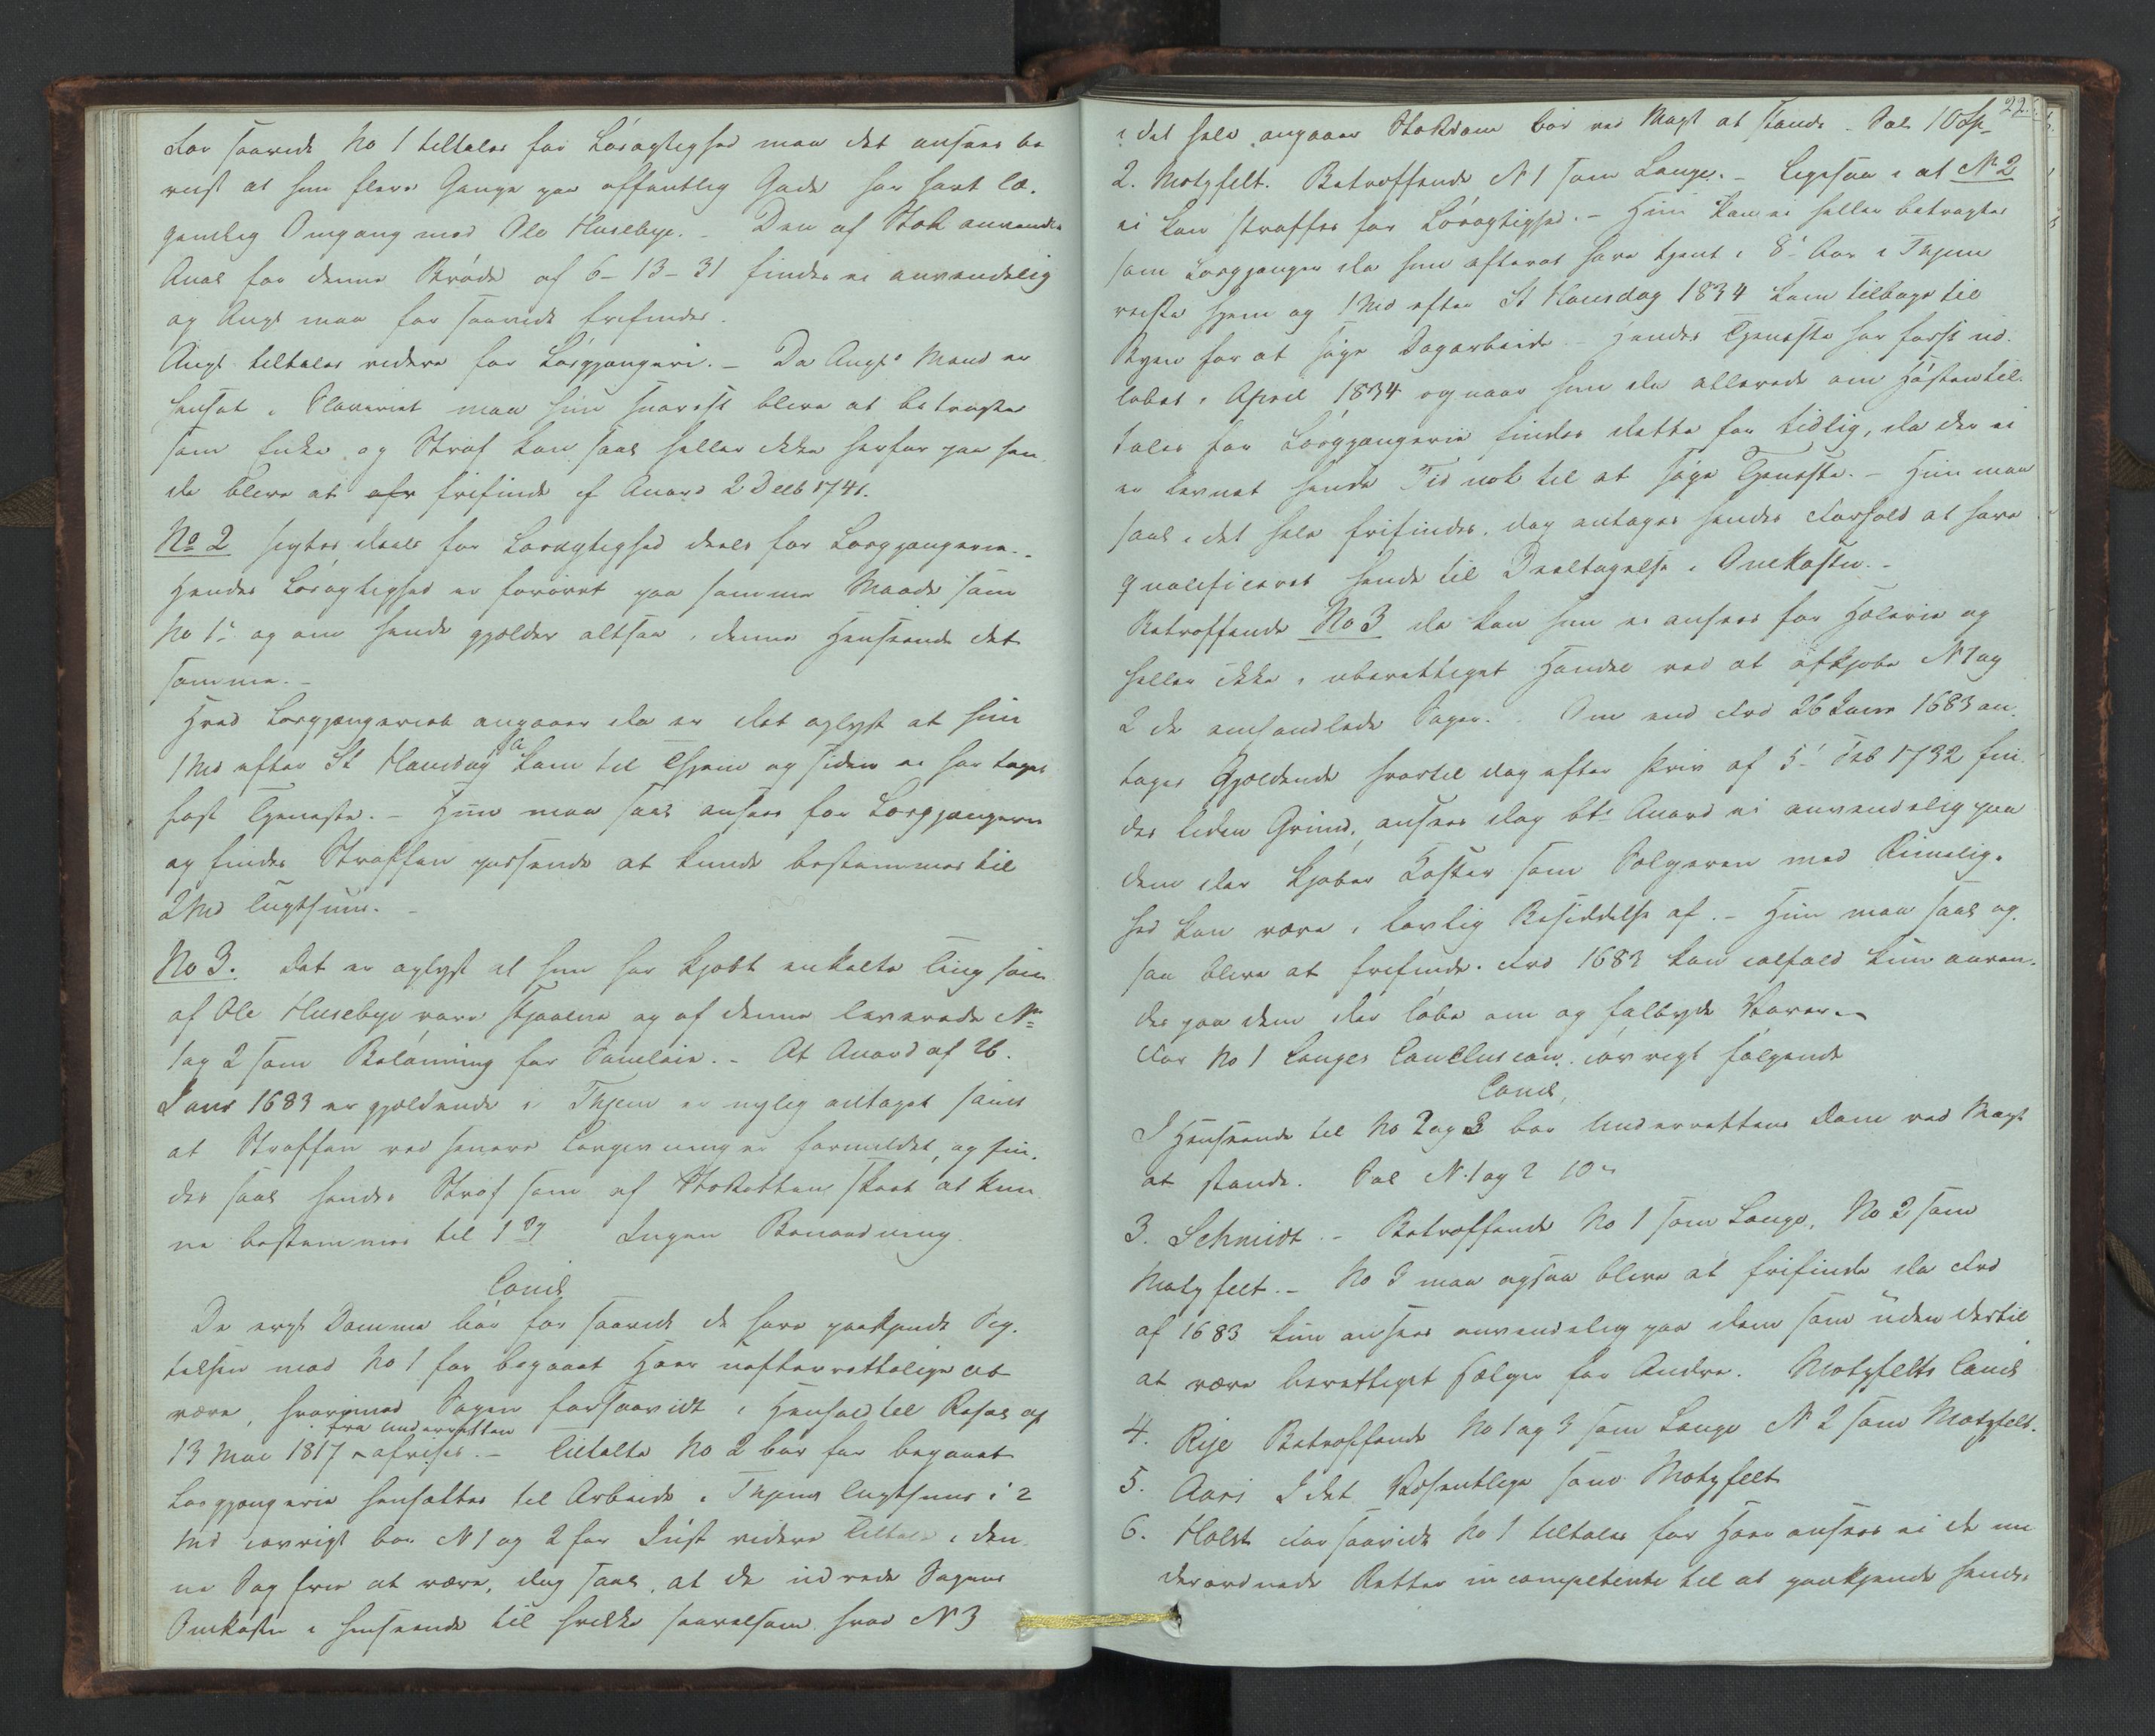 For saavidt No 1 tiltales for Løsagtighed maa det ansees be
viist at hun flere Gange paa offentlig Gade har havt læ-
gemlig Omgang med Ole Husebye. - Den af StOR anvendte
Anal for denne Brøde af 6-13-31 findes ei anvendelig
og Angl maa for saavidt frifindes.
Angl tiltales videre for Løsgjængeri. - Da Angls Mand er
hensat i Slaveriet maa hun snarest blive at betragte
som Enke og Straf kan saal heller ikke herfor paa hen
de blive at frifinde cf Anord 2 Decb 1741.
No 2 sigtes deels for Løsagtighed deels for Løsgjængerie. -
Hendes Løsagtighed er forøvet paa samme Maade som
No 1s og om hende gjælder altsaa i denne Henseende det
samme. -
Hvad Løsgjængeriet angaaer da er det oplyst at hun
1 Md efter St Hansdag kom til Thjem og siden ei har taget
fast Tjeneste. - Hun maa saal ansees for Løsgjængerie
og findes Straffen passende at kunde bestemmes til
2 Md Tugthuus. -
No 3. Det er oplyst at hun har kjøbt enkelte Ting som
af Ole Husebye vare stjaalne og af denne leverede No
1 og 2 som Belønning for Samleie. - At Anord af 26
Janr 1683 er gjeldende i Thjem er nylig antaget samt
at Straffen ved senere Lovgivning er formildet, og fin-
des saal hendes Straf som af StOretten skeet at kun
ne bestemmes til 1 Ingen Benaadning.
Concl
De ergl Domme bør for saavidt de have paakjendt Sig-
telsen mod No 1 for begaaet Hoer uefterrettelige at
være, hvorimod Sagen forsaavidt i Henhold til Resol af
13 Mai 1817 fra Underretten afvises. - Tiltalte No 2 bør for begaaet
Løsgjængerie hensættes til Arbeide i Thjems Tugthuus i 2
Md iøvrigt bør N 1 og 2 for Just videre Tiltale i den
ne Sag frie at være, dog saal. at de udrede Sagens
Omkostn i Henseende til hvilke saavelsom hvad N 3
22.
i det hele angaaer StoRdom bør ved Magt at stande - Sal 10 Sp
2. Motzfelt. Betreffende N 1 som Lange. - Ligesaa i at No 2
ei kan straffes for Løsagtighed. - Hun kan ei heller betragtes
som Løsgjænger da hun efterat have tjent i 8 Aar i Thjem
reiste hjem og 1 Md efter St Hansdag 1834 kom tilbage til
Byen for at søge Dagarbeide - Hendes Tjeneste har først ud-
løbet i April 1834 og naar hun da allerede om Høsten til-
tales for Løsgjængerie findes dette for tidlig, da der ei
er levnet hende Tid nok til at søge Tjeneste. - Hun maa
saal i det hele frifindes, dog antages hendes Forhold at have
qvalificeret hende til Deeltagelse i Omkostn. -
Betreffende No 3 da kan hun ei ansees for Hælerie og
heller ikke i uberettiget Handel ved at afkjøbe N 1 og
2 de omhandlede Sager. - Om end Frd 26 Janr 1683 an-
tages Gjeldende hvortil dog efter Skriv af 5 Feb 1732 fin-
des liden Grund, ansees dog bte Anord ei anvendelig paa
dem der kjøber Koster som Sælgeren med Rimelig-
hed kan være i lovlig Besiddelse af. - Hun maa saal og
saa blive at frifinde. Frd 1683 kan ialfald kun anven-
des paa dem der løbe om og falbyde Varer. -
For No 1 Langes Conclusion. iøvrigt følgende
Concl,
I Henseende til No 2 og 3 bør Underrettens Dom ved Magt
at stande. Sal N. 1 og 2 10
3. Schmidt. - Betreffende No 1 som Lange, No 2 som
Motzfelt. - No 3 maa ogsaa blive at frifinde da Frd
af 1683 kun ansees anvendelig paa dem som uden dertil
at være berettiget sælger for Andre. Motzfelts Concl
4. Rije Betreffende No 1 og 3 som Lange N 2 som Motzfelt.
5. I det Væsentlige som Motzfelt
6. Holst For saavidt No 1 tiltales for Hoer ansees ei de un
derordnede Retter incompetente til at paakjende hendes